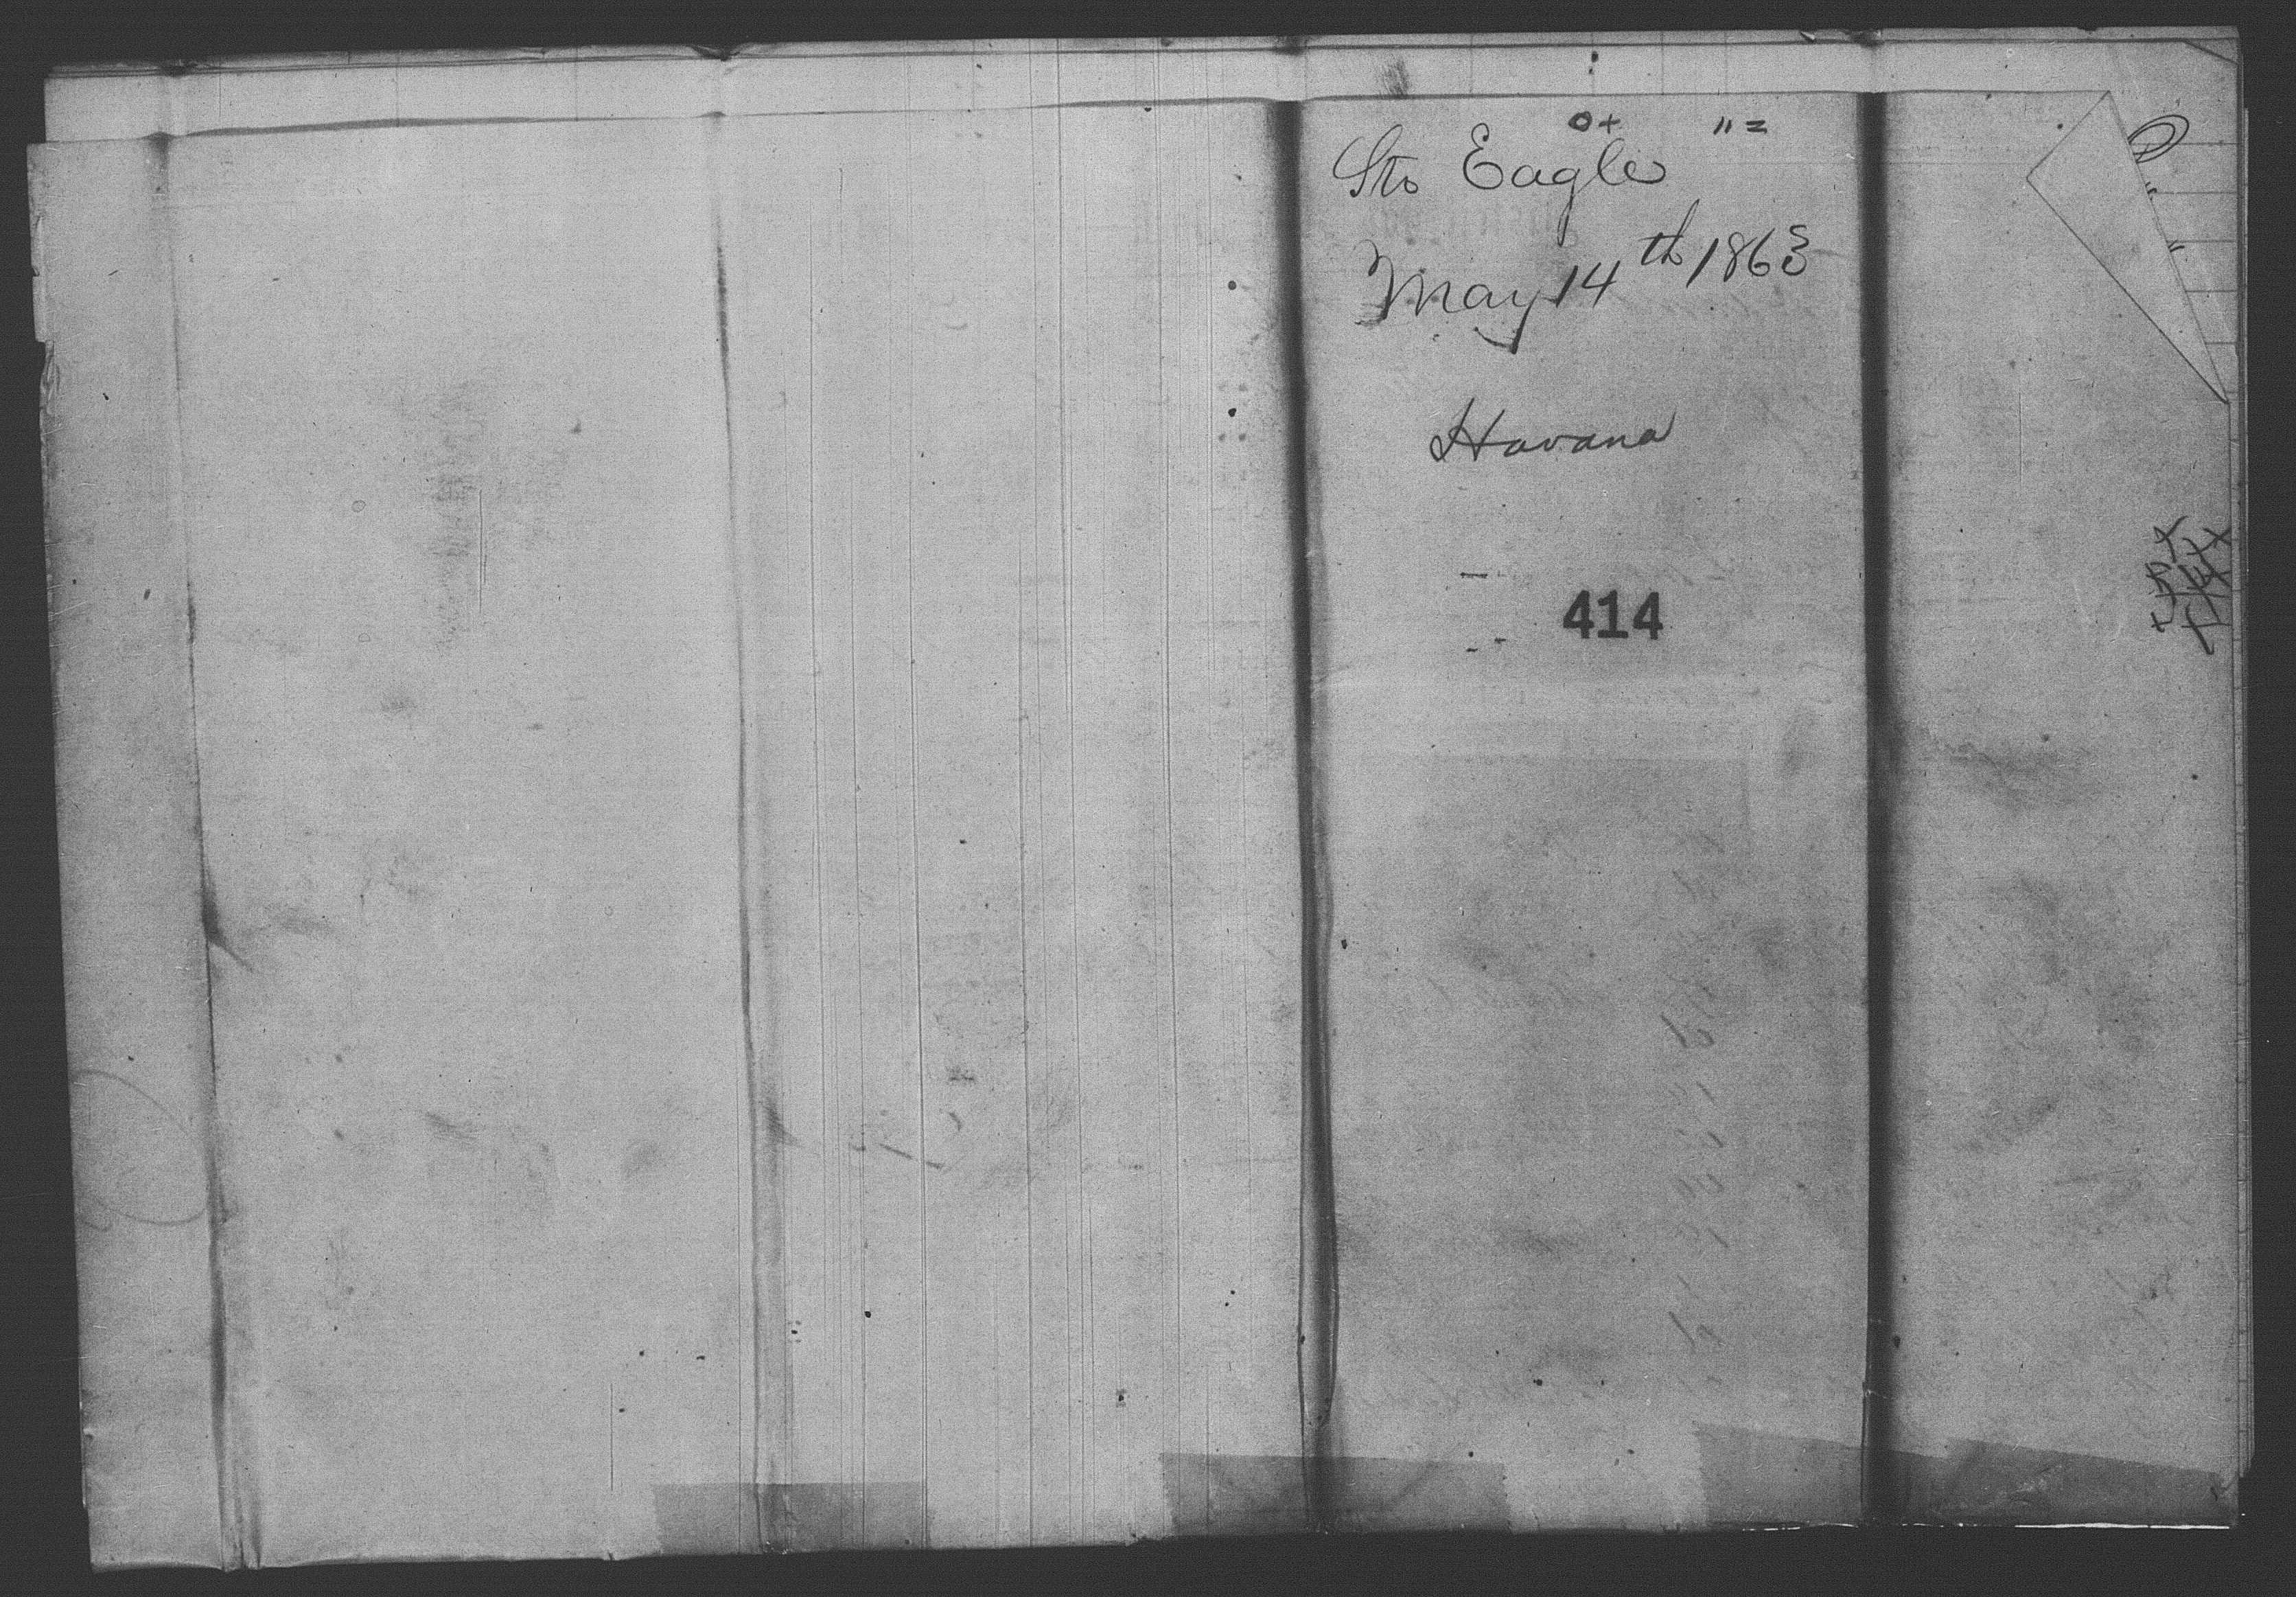 o+ " =
Str Eagle
May 14th 1863
Havana
414